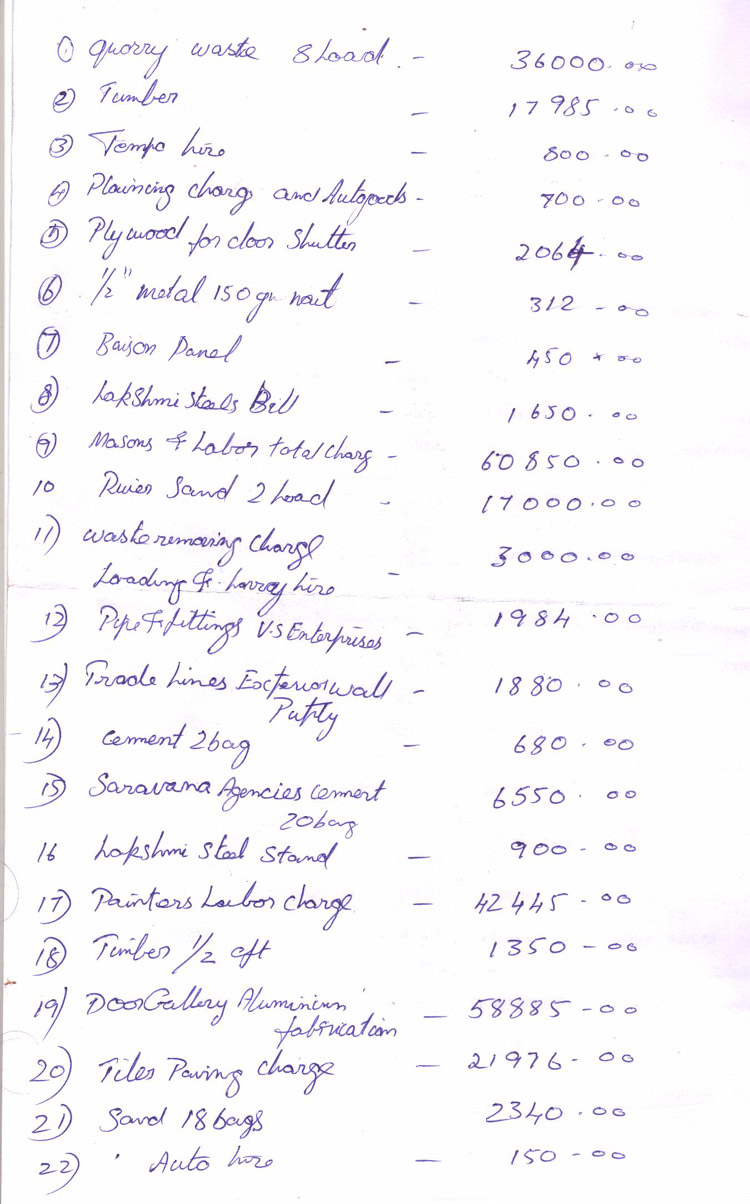 ① Quorry waste 8 Load. - 36000.00
② Timber - 17985.00
③ Tempo hire - 800-00
④ Plaining charg and Autogoods - 700-00
⑤ Plywood for door Shutter - 2064-00
⑥ 1/2" metal 150 gr nail - 312-00
⑦ Baison Panel - 450 * 00
⑧ Lakshmi Steels Bill - 1650.00
⑨ Masons & Labor total charg - 60850.00
10 River Sand 2 Load - 17000.00
11) waste removing charge 3000.00
Loading & Lorrey hire -
12) Pipe & fittings V.S Enterprises - 1984.00
13) Trade Lines Exterior wall - 1880.00
Putty
14) cement 2 bag - 680.00
15) Saravana Agencies cement 6550.00
20 bag
16 Lakshmi Steel Stand - 900-00
17) Painters Laibor charge - 42445-00
18) Timber 1/2 cft 1350-00
19) Door Gallery Aluminium - 58885-00
fabrication
20) Tiles Paving charge - 21976-00
21) Sand 18 bags 2340.00
22) Auto hire - 150-00